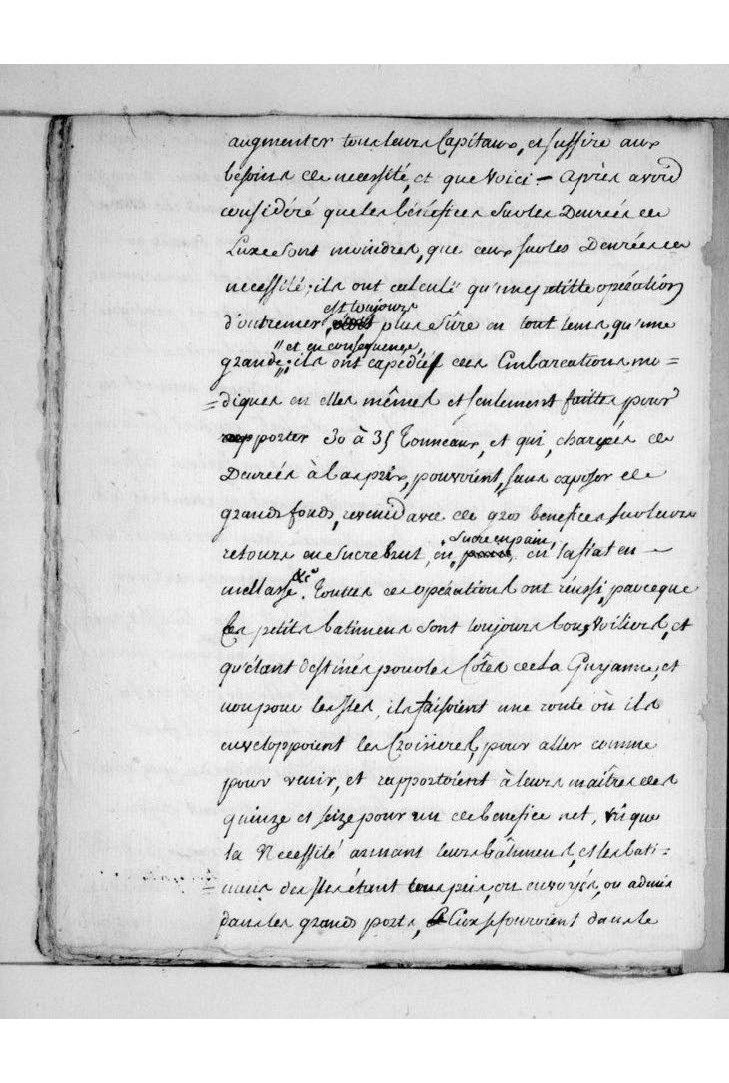 augmenter tous leurs Capitaux, et suffire aux
besoins de necessité, et que voici. – Après avoir
considéré que les bénéfices sur les Denrées de
Luxe sont moindres, que ceux sur les Denrées de
necessité; ils ont calculé qu'une petitte opération
est toujours
d'outremer, plus sûre en tout tems, qu'une
et en conséquence,
grande; ils ont expédié des Embarcations mo=
=diques en elles mêmes et seulement faittes, pour
porter 30 à 35 Tonneaux, et qui, chargées de
Denrées à bas prix, pouvoient, sans exposer de
grands fonds, revenir avec de gros benefices sur leurs
retours en sucre brut, en sucre en pain, en tafiat en –
mellasse &c. Touttes ces opérations ont réussi, parceque
les petits batimens sont toujours bons voiliers, et
qu'étant destinés pour les Côtes de la Guyanne, et
non pour les Isles, ils faisoient une route où ils
enveloppoient les Croisieres, pour aller comme
pour venir, et rapportoient à leurs maîtres des
quinze et seize pour un de benefice net, vû que
la Necessité armant leurs bâtimens, et les bati=
=mens des Isles étant tous pris, ou envoyés, ou admis
dans les grands ports, Ceux se trouvoient dans le